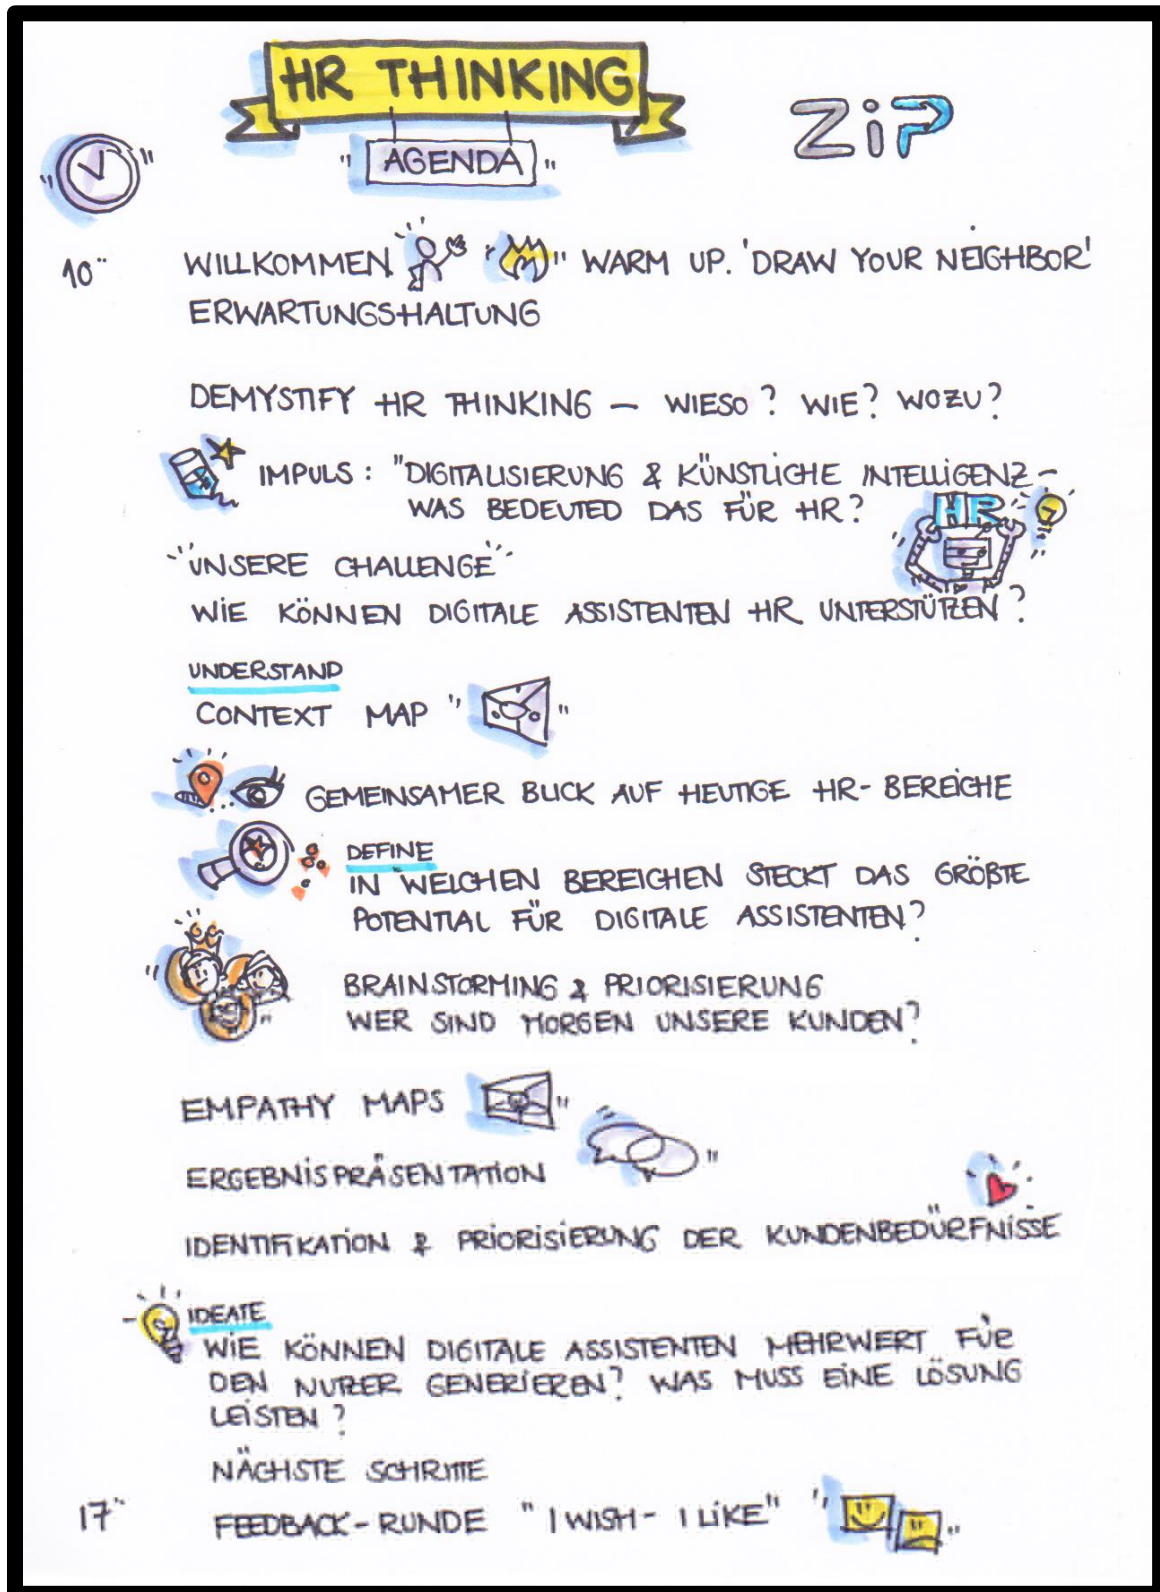 HR THINKING
ZiP
"AGENDA"
10¨ WILLKOMMEN WARM UP. 'DRAW YOUR NEIGHBOR'
ERWARTUNGSHALTUNG
DEMYSTIFY HR THINKING – WIESO? WIE? WOZU?
IMPULS: "DIGITALISIERUNG & KÜNSTLICHE INTELLIGENZ –
WAS BEDEUTED DAS FÜR HR?
HR
"UNSERE CHALLENGE"
WIE KÖNNEN DIGITALE ASSISTENTEN HR UNTERSTÜTZEN?
UNDERSTAND
CONTEXT MAP
GEMEINSAMER BLICK AUF HEUTIGE HR-BEREICHE
DEFINE
IN WELCHEN BEREICHEN STECKT DAS GRÖßTE
POTENTIAL FÜR DIGITALE ASSISTENTEN?
BRAINSTORMING & PRIORISIERUNG
WER SIND MORGEN UNSERE KUNDEN?
EMPATHY MAPS
ERGEBNISPRÄSENTATION
IDENTIFIKATION & PRIORISIERUNG DER KUNDENBEDÜRFNISSE
IDEATE
WIE KÖNNEN DIGITALE ASSISTENTEN MEHRWERT FÜR
DEN NUTZER GENERIEREN? WAS MUSS EINE LÖSUNG
LEISTEN?
NÄCHSTE SCHRITTE
17¨ FEEDBACK-RUNDE "I WISH - I LIKE"